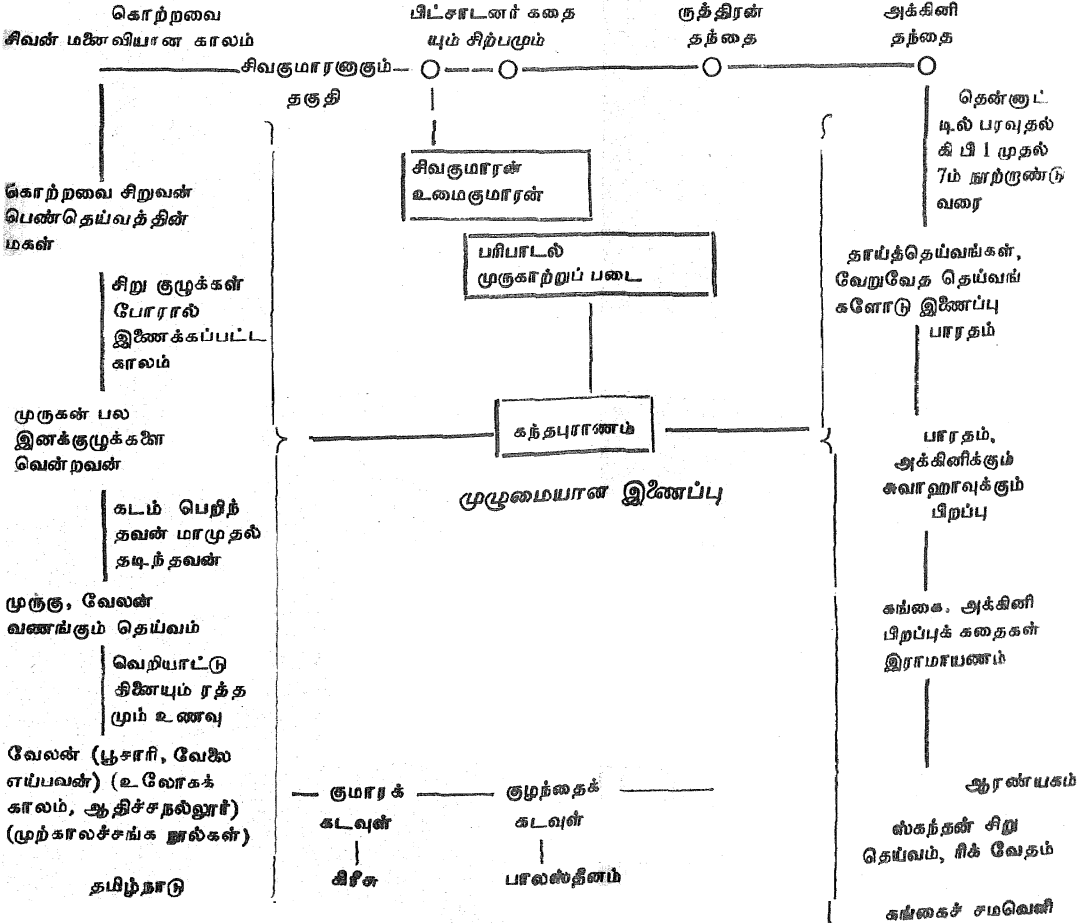 கொற்றவை
சிவன் மனைவியான காலம்
பிட்சாடனர் கதை
யும் சிற்பமும்
ருத்திரன்
தந்தை
அக்கினி
தந்தை
சிவகுமாரனாகும்
தகுதி
தென்னாட்
டில் பரவுதல்
கி பி 1 முதல்
7ம் நூற்றாண்டு
வரை
சிவகுமாரன்
உமைகுமாரன்
கொற்றவை சிறுவன்
பெண்தெய்வத்தின்
மகள்
பரிபாடல்
முருகாற்றுப் படை
தாய்த்தெய்வங்கள்,
வேறுவேத தெய்வங்
களோடு இணைப்பு
பாரதம்
சிறு குழுக்கள்
போரால்
இணைக்கப்பட்ட
காலம்
முருகன் பல
இனக்குழுக்களை
வென்றவன்
கந்தபுராணம்
முழுமையான இணைப்பு
பாரதம்,
அக்கினிக்கும்
சுவாஹாவுக்கும்
பிறப்பு
கடம் பெறிந்
தவன் மாமுதல்
தடிந்தவன்
முருகு, வேலன்
வணங்கும் தெய்வம்
கங்கை, அக்கினி
பிறப்புக் கதைகள்
இராமாயணம்
வெறியாட்டு
தினையும் ரத்த
மும் உணவு
வேலன் (பூசாரி, வேலை
எய்பவன்) (உலோகக்
காலம், ஆதிச்சநல்லூர்)
(முற்காலச்சங்க நூல்கள்)
தமிழ்நாடு
குமாரக்
கடவுள்
கிரீசு
குழந்தைக்
கடவுள்
பாலஸ்தீனம்
ஆரண்யகம்
ஸ்கந்தன் சிறு
தெய்வம், ரிக் வேதம்
கங்கைச் சமவெளி